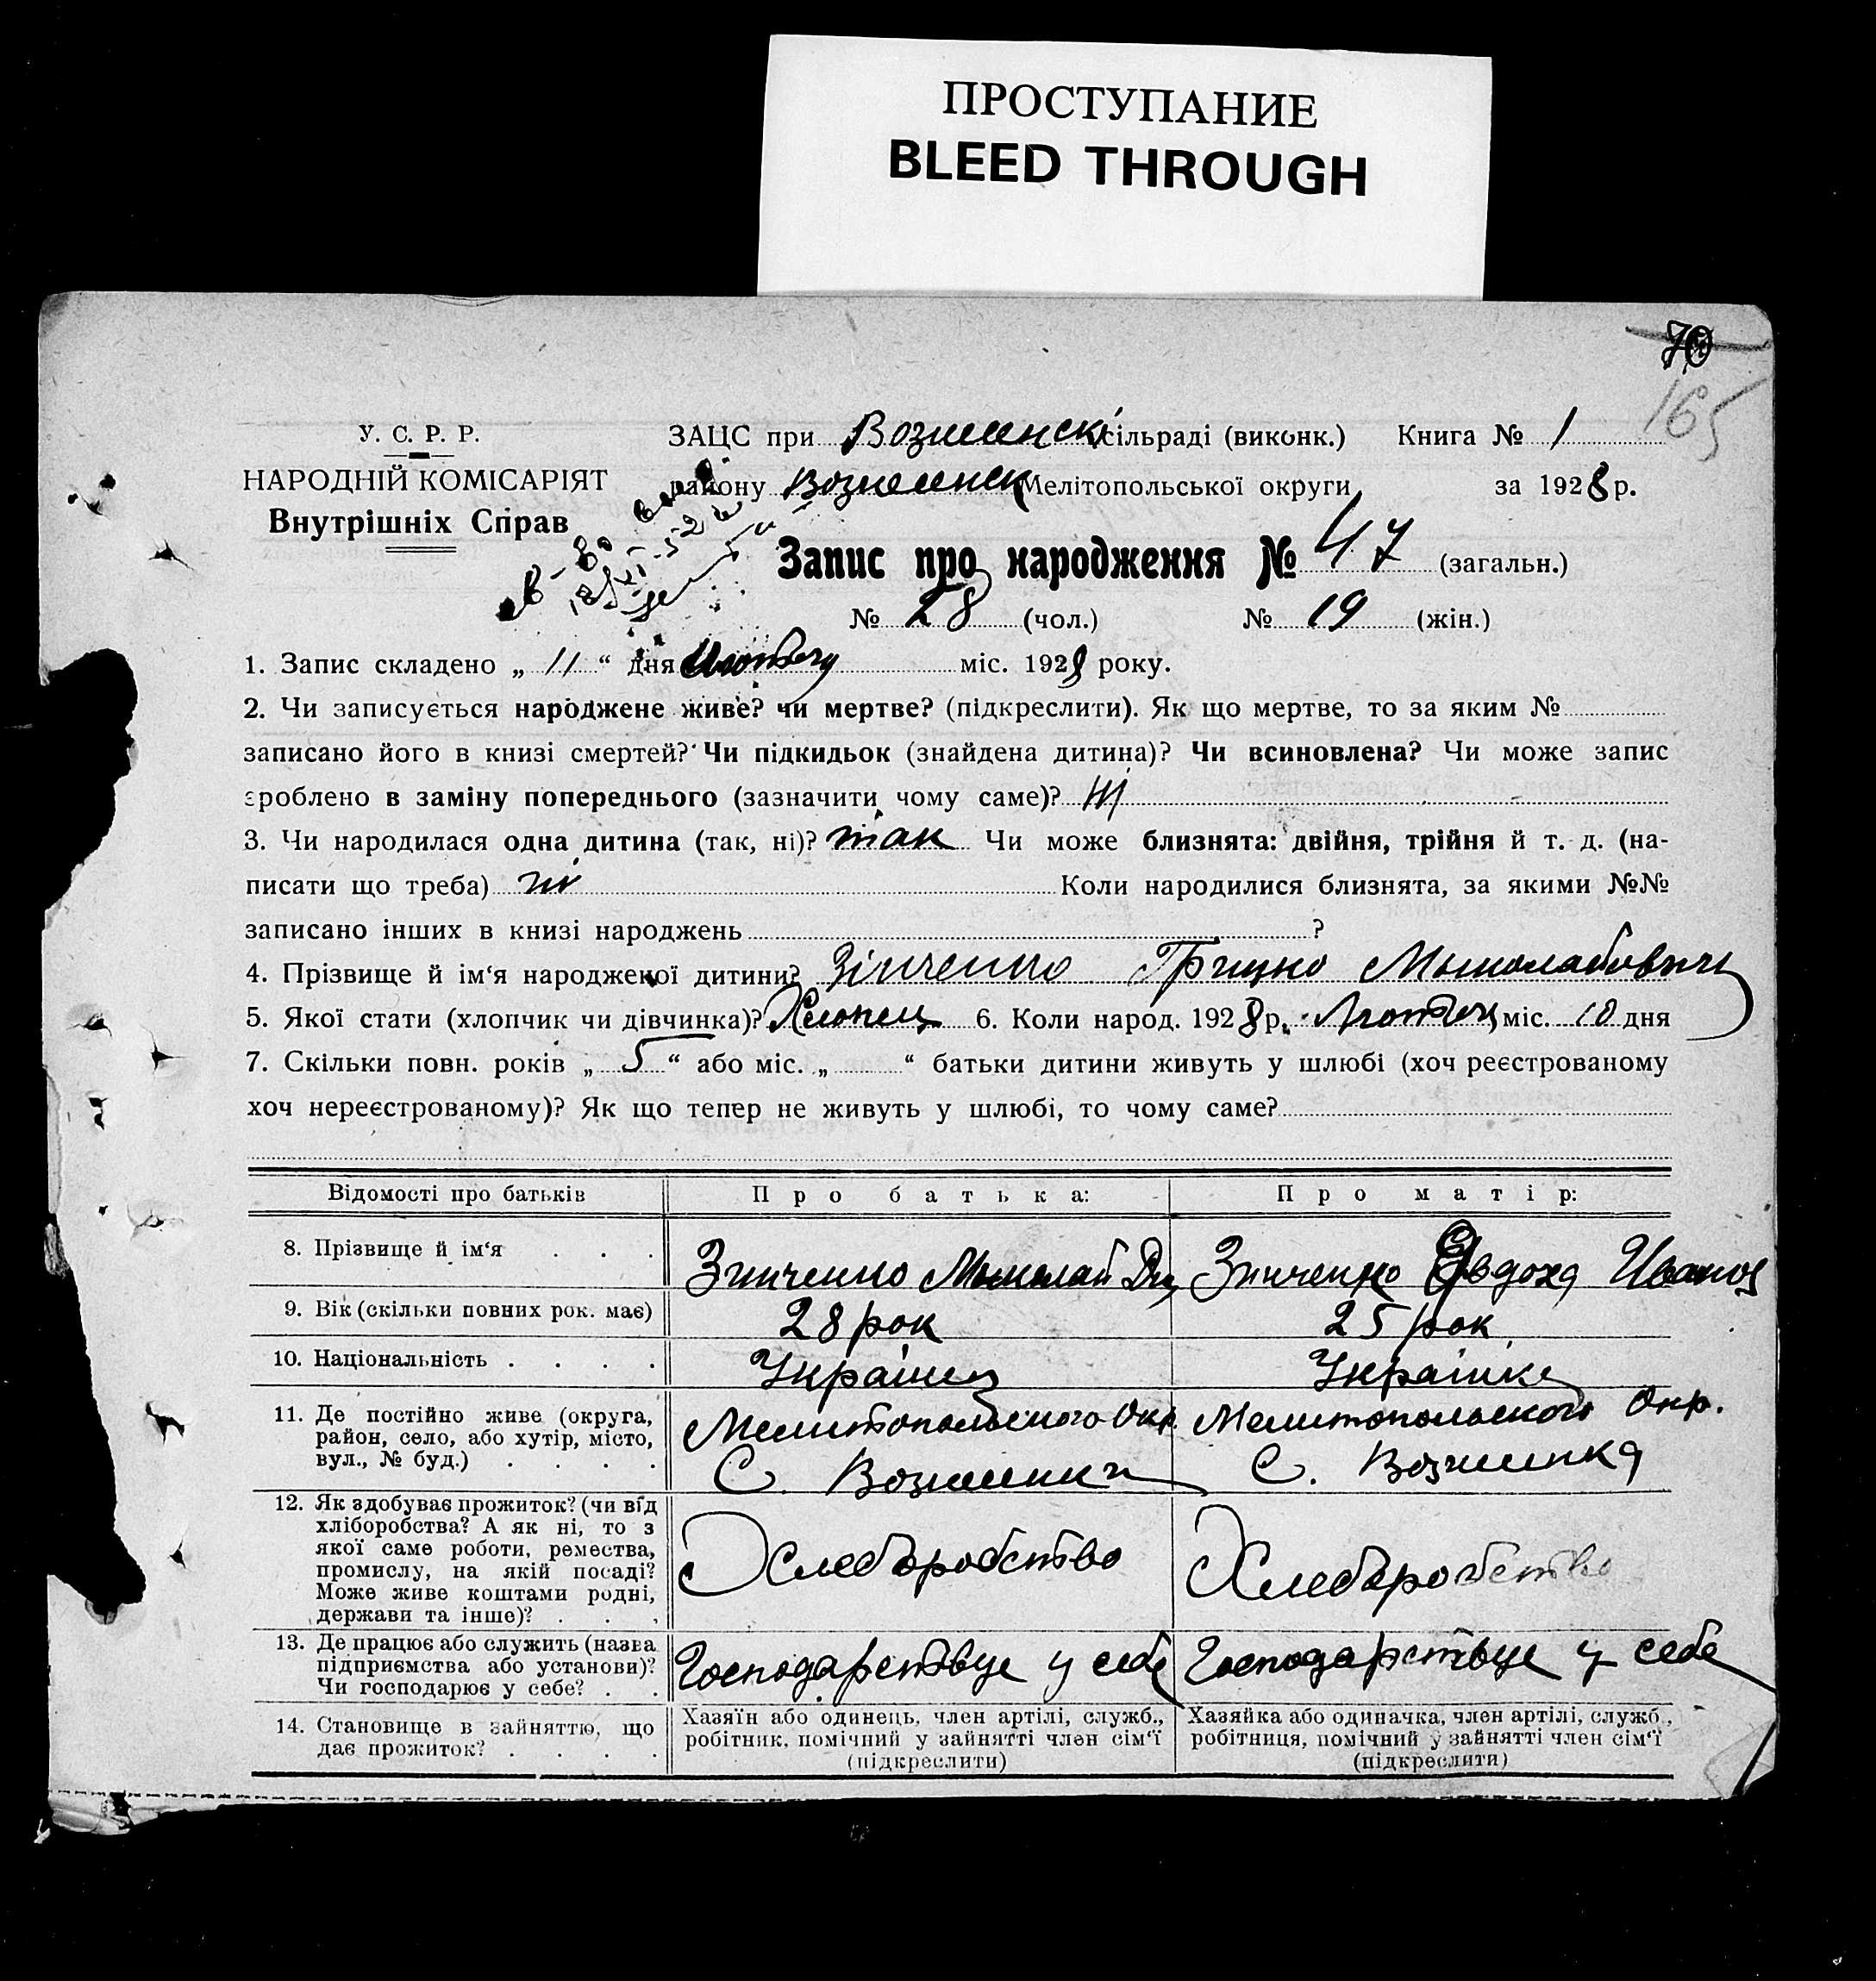 ПРОСТУПАНИЕ
BLEED THROUGH
70
165
У. С. Р. Р.
НАРОДНІЙ КОМІСАРІЯТ
Внутрішніх Справ
ЗАЦС при Возненскі сільраді (виконк.) Книга № 1
району Вознесенск Мелітопольської округи за 1928 р.
Запис про народження № 47 (загальн.)
№ 28 (чол.) № 19 (жін.)
1. Запис складено „ 11 “ дня Лютого міс. 1928 року.
2. Чи записується народжене живе? чи мертве? (підкреслити). Як що мертве, то за яким №
записано його в книзі смертей? Чи підкидьок (знайдена дитина)? Чи всиновлена? Чи може запис
зроблено в заміну попереднього (зазначити чому саме)? Ні
3. Чи народилася одна дитина (так, ні)? так Чи може близнята: двійня, трійня й т. д. (на-
писати що треба) ні Коли народилися близнята, за якими №№
записано інших в книзі народжень ?
4. Прізвище й ім‘я народженої дитини? Зінченко Грицко Мыколабович
5. Якої стати (хлопчик чи дівчинка)? Хлопец 6. Коли народ. 1928 р. Лютого міс. 10 дня
7. Скільки повн. років „ 5 “ або міс. „ “ батьки дитини живуть у шлюбі (хоч реєстрованому
хоч нереєстрованому)? Як що тепер не живуть у шлюбі, то чому саме?
Відомості про батьків Про батька: Про матір:
8. Прізвище й ім‘я . . . Зинченко Мыколай Зинченко Явдоха Иванов
9. Вік (скільки повних рок. має) 28 рок 25 рок
10. Національність . . . . Украінец Украінка
11. Де постійно живе (округа, район, село, або хутір, місто, вул., № буд.) . . . . Мелитопольского Окр. Мелитопольского Окр.
С. Вознеинки С. Вознеинка
12. Як здобуває прожиток? (чи від хліборобства? А як ні, то з якої саме роботи, ремества, промислу, на якій посаді? Може живе коштами родні, держави та інше)? . . . Хлебъробство Хлебъробство
13. Де працює або служить (назва підприємства або установи)? Чи господарює у себе? . . Господарствуе у себе Господарствуе у себе
14. Становище в зайняттю, що дає прожиток? . . . . Хазяїн або одинець, член артілі, служб., робітник, помічний у зайнятті член сім‘ї (підкреслити) Хазяйка або одиначка, член артілі, служб., робітниця, помічний у зайнятті член сім‘ї (підкреслити)